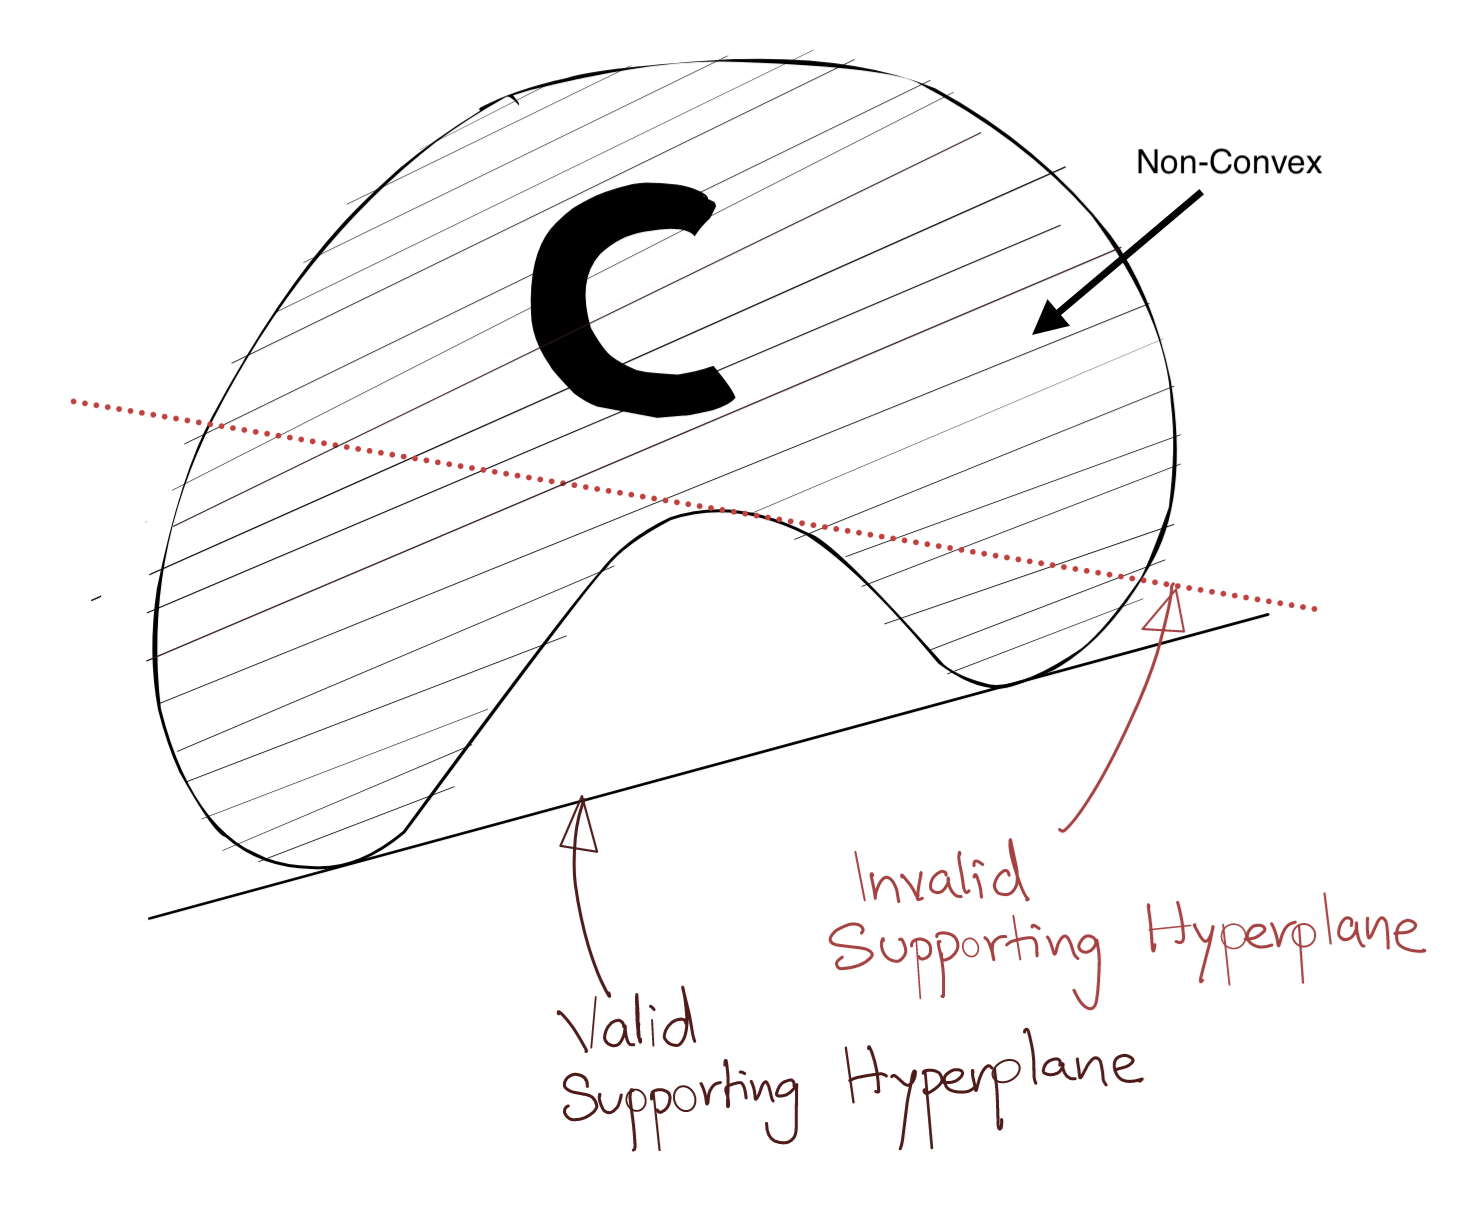 Non-Convex
C
Invalid
Supporting Hyperplane
Valid
Supporting Hyperplane